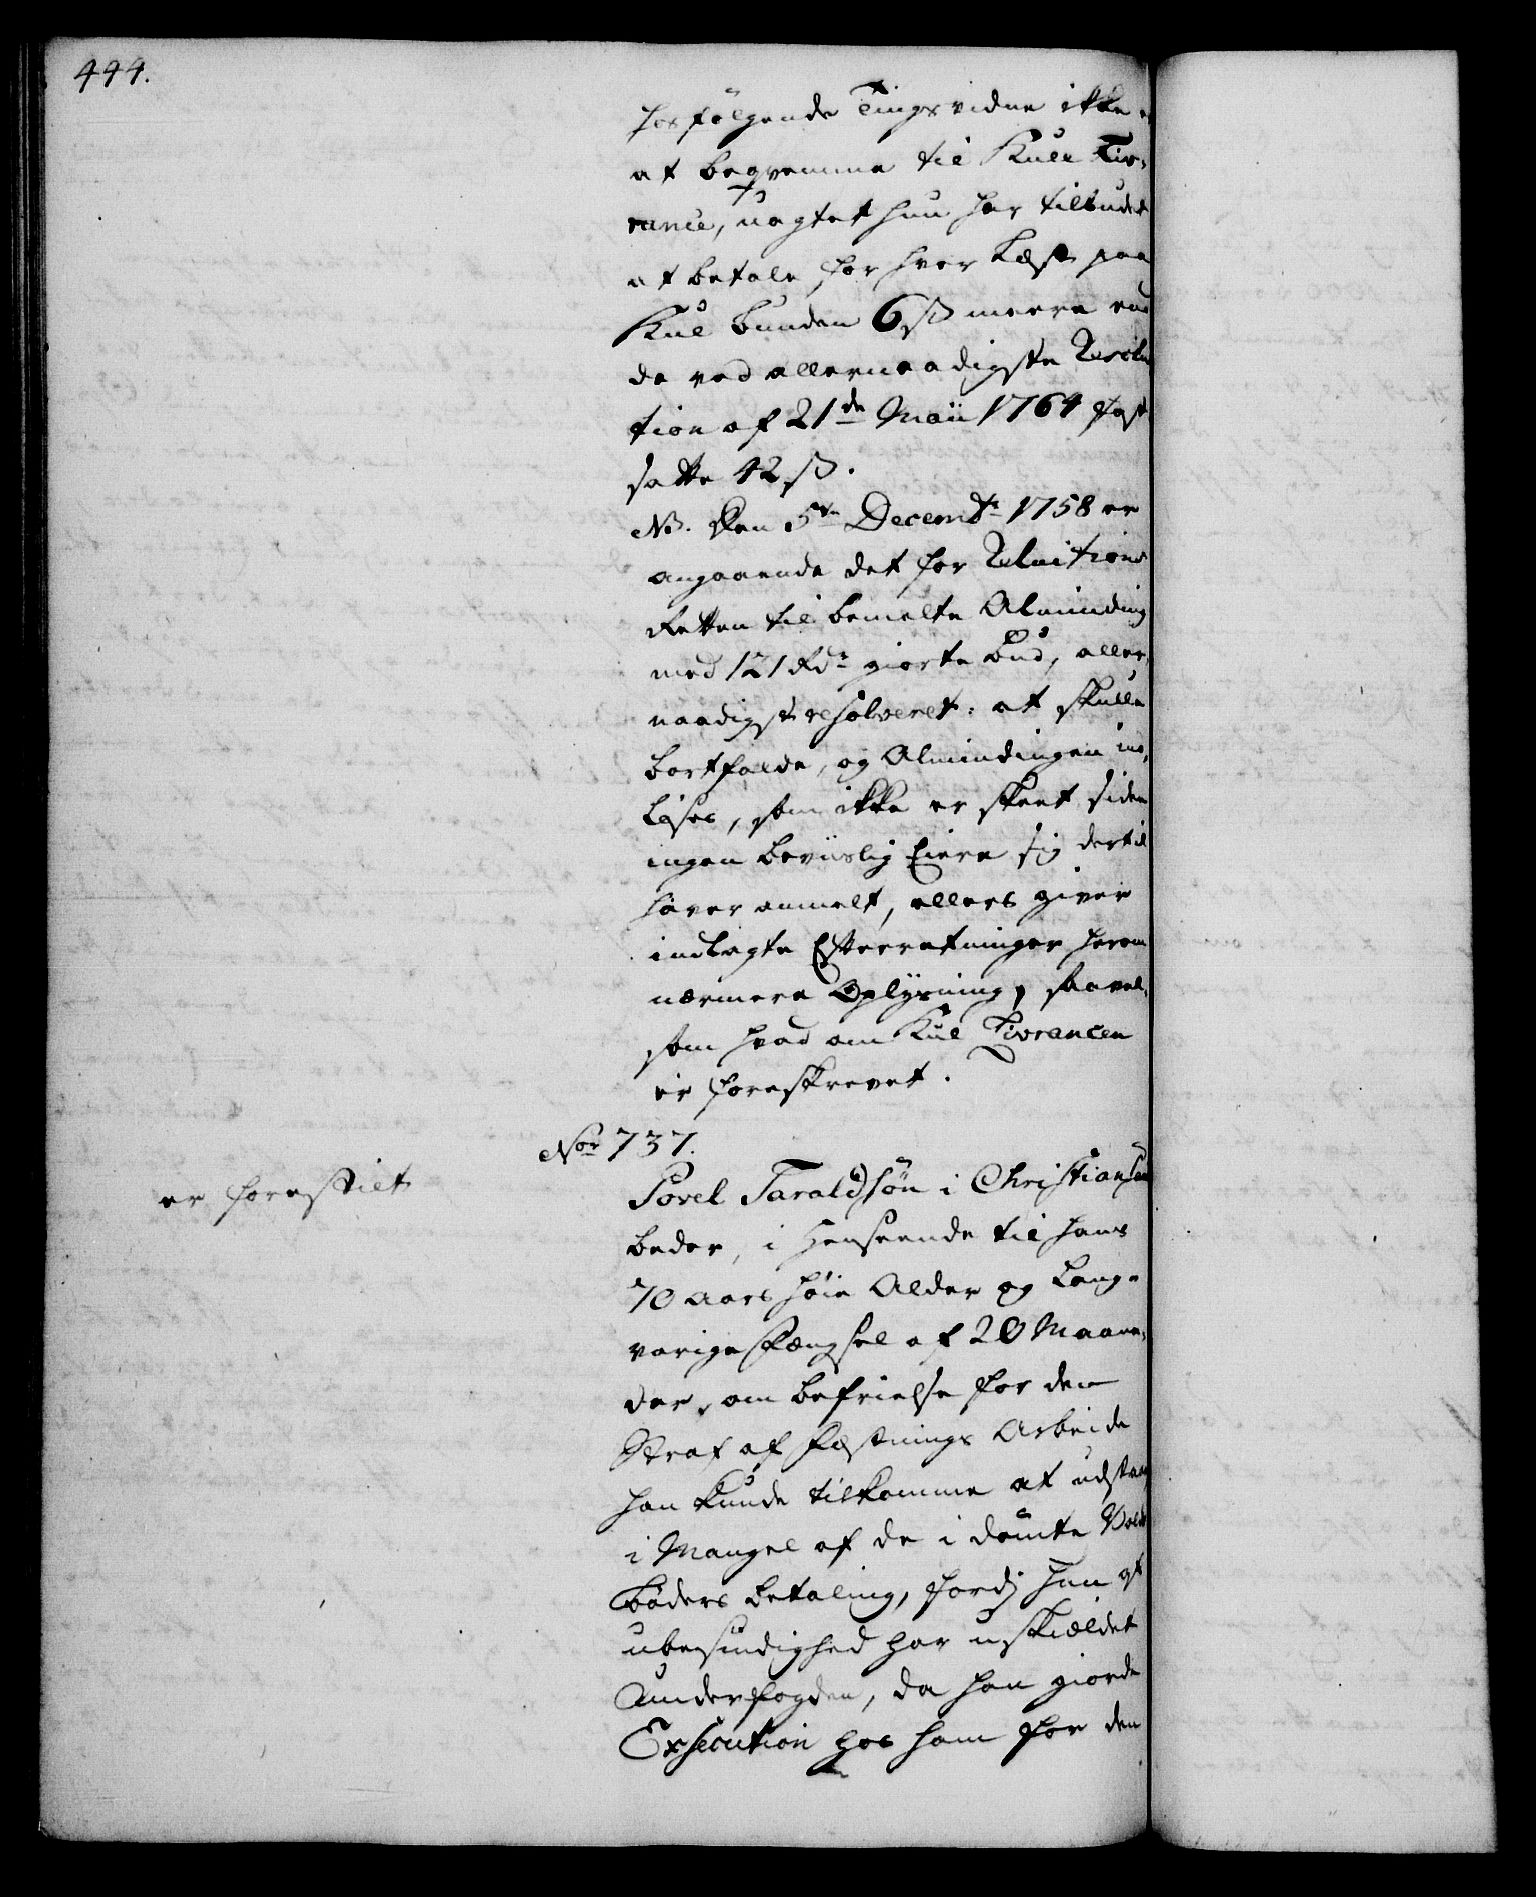 444.
hosfølgende Tingsvidne ikke
at beqvemme til Kull Liv-
rance, uagtet hun har tilbudet
at betale for hver Læst paa
Kul bunden 6 ß meere end
de ved allernaadigste Resolu
tion af 21de Maii 1764 fast
satte 42 ß.
NB. Den 5te Decembr 1758 er
angaaende det for Reluitions
Retten til bemelte Alminding
med 121 Rdr giorte Bud, aller-
naadigst resolveret: at skulle
bortfalde, og Almindingen ind-
løses, som ikke er skeet siden
ingen beviislig Eiere sig dertil
haver anmelt, ellers giver
indlagte Efterretninger herom
nærmere Oplysning, saavel-
som hvad om Kul Livrancen
er foreskrevet.
Nor 737.
er forestilt
Povel Taraldsøn i Christiansand
beder, i Henseende til hans
70 Aars høie Alder og lang-
varige Fængsel af 20 Maane-
der, om befrielse for den
Straf af Fæstnings Arbeide
han kunde tilkomme at udstaae
i Mangel af de i dømte Volds
bøders betaling, fordj han af
ubesindighed har uskieldet
Underfogden, da han giorde
Exsecution hos ham for den